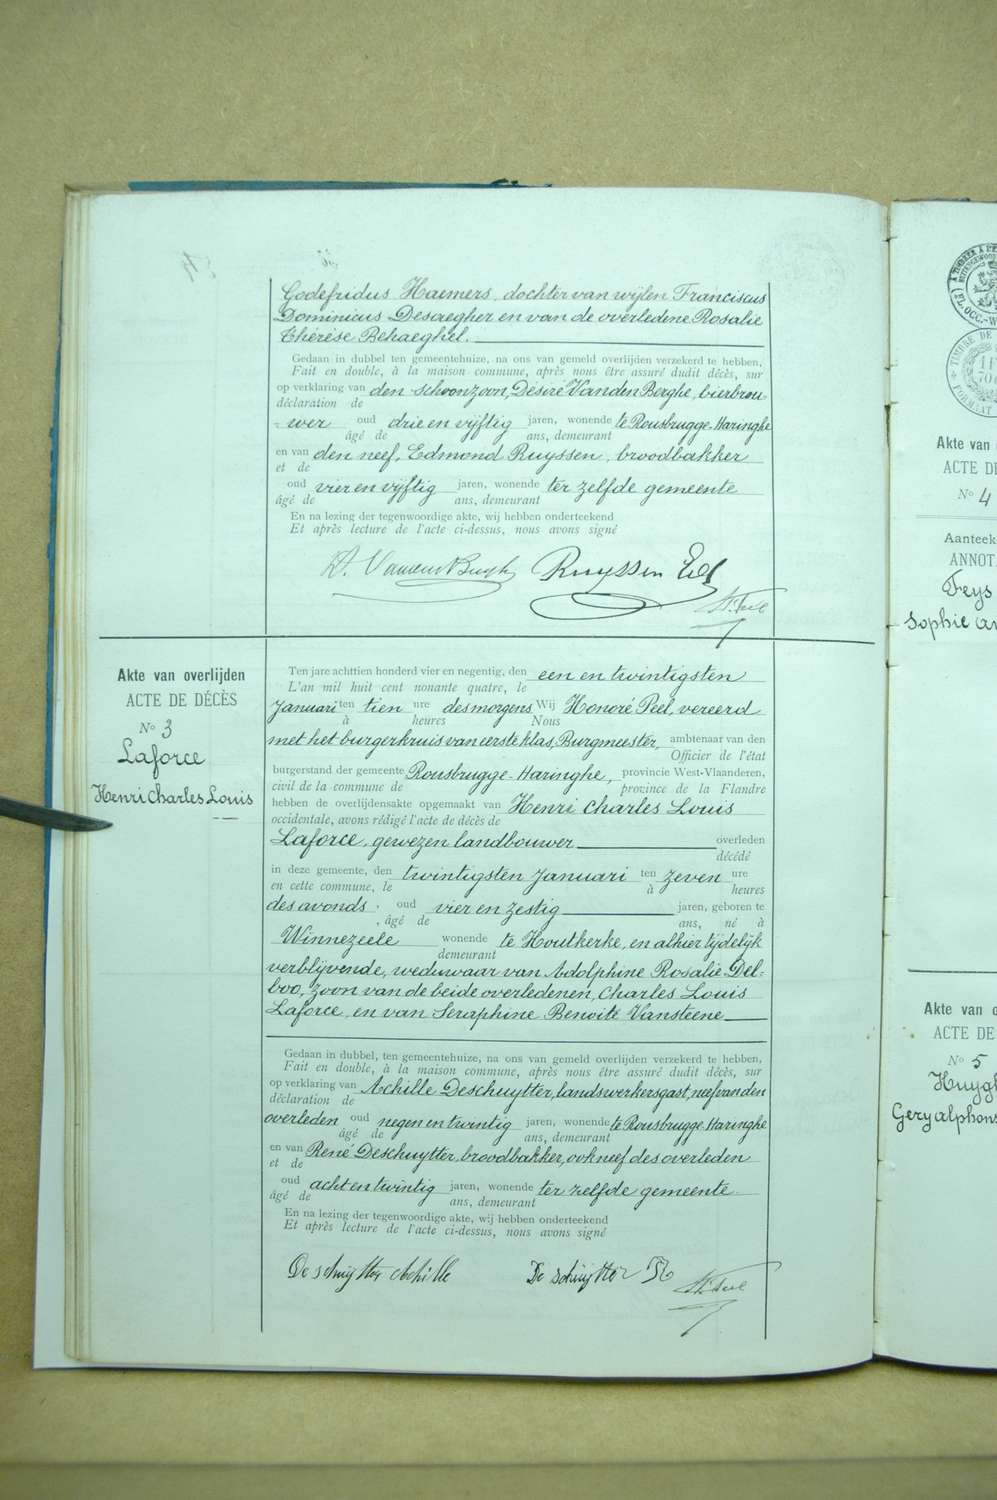 Godefridus Haemers, dochter van wijlen Franciscus
Dominicus Desaegher en van de overledene Rosalie
Thérèse Behaeghel.
Gedaan in dubbel ten gemeentehuize, na ons van gemeld overlijden verzekerd te hebben,
Fait en double, à la maison commune, après nous être assuré dudit décès, sur
op verklaring van den schoonzoon, Desiré Vanden Berghe, bierbrou-
déclaration de
wer oud drie en vijftig jaren, wonende te Rousbrugge-Haringhe
âgé de ans, demeurant
en van den neef, Edmond Ruyssen, broodbakker
et de
oud vier en vijftig jaren, wonende ter zelfde gemeente
âgé de ans, demeurant
En na lezing der tegenwoordige akte, wij hebben onderteekend
Et après lecture de l'acte ci-dessus, nous avons signé
Ruyssen Ed
Akte van overlijden
ACTE DE DÉCÈS
No 3
Laforce
Henri Charles Louis
Ten jare achttien honderd vier en negentig, den een en twintigsten
L'an mil huit cent nonante quatre, le
Januari ten tien ure des morgens Wij Honoré Peel, vereerd
à heures Nous
met het burgerkruis van eerste klas, Burgmeester, ambtenaar van den
Officier de l'état
burgerstand der gemeente Rousbrugge-Haringhe, provincie West-Vlaanderen,
civil de la commune de province de la Flandre
hebben de overlijdensakte opgemaakt van Henri Charles Louis
occidentale, avons rédigé l'acte de décès de
Laforce, gewezen landbouwer overleden
décédé
in deze gemeente, den twintigsten Januari ten zeven ure
en cette commune, le à heures
des avonds. oud vier en zestig jaren, geboren te
âgé de ans, né à
Winnezeele wonende te Houtkerke, en alhier tijdelijk
demeurant
verblijvende, weduwaar van Adolphine Rosalie Del-
boo, zoon van de beide overledenen, Charles Louis
Laforce, en van Seraphine Benoite Vansteene
Gedaan in dubbel, ten gemeentehuize, na ons van gemeld overlijden verzekerd te hebben,
Fait en double, à la maison commune, après nous être assuré dudit décès, sur
op verklaring van Achille Deschuytter, landswerkersgast, neef van den
déclaration de
overleden oud negen en twintig jaren, wonende te Rousbrugge-Haringhe
âgé de ans, demeurant
en van René Deschuytter, broodbakker, ook neef des overleden
et de
oud acht en twintig jaren, wonende ter zelfde gemeente
âgé de ans, demeurant
En na lezing der tegenwoordige akte, wij hebben onderteekend
Et après lecture de l'acte ci-dessus, nous avons signé
Deschuytter Achille De Schuytter R
H. Peel
Akte van
ACTE DE
No 4
Aanteek
ANNOT
Feys
Sophie
Akte van
ACTE DE
No 5
Huygh
Gery alphons